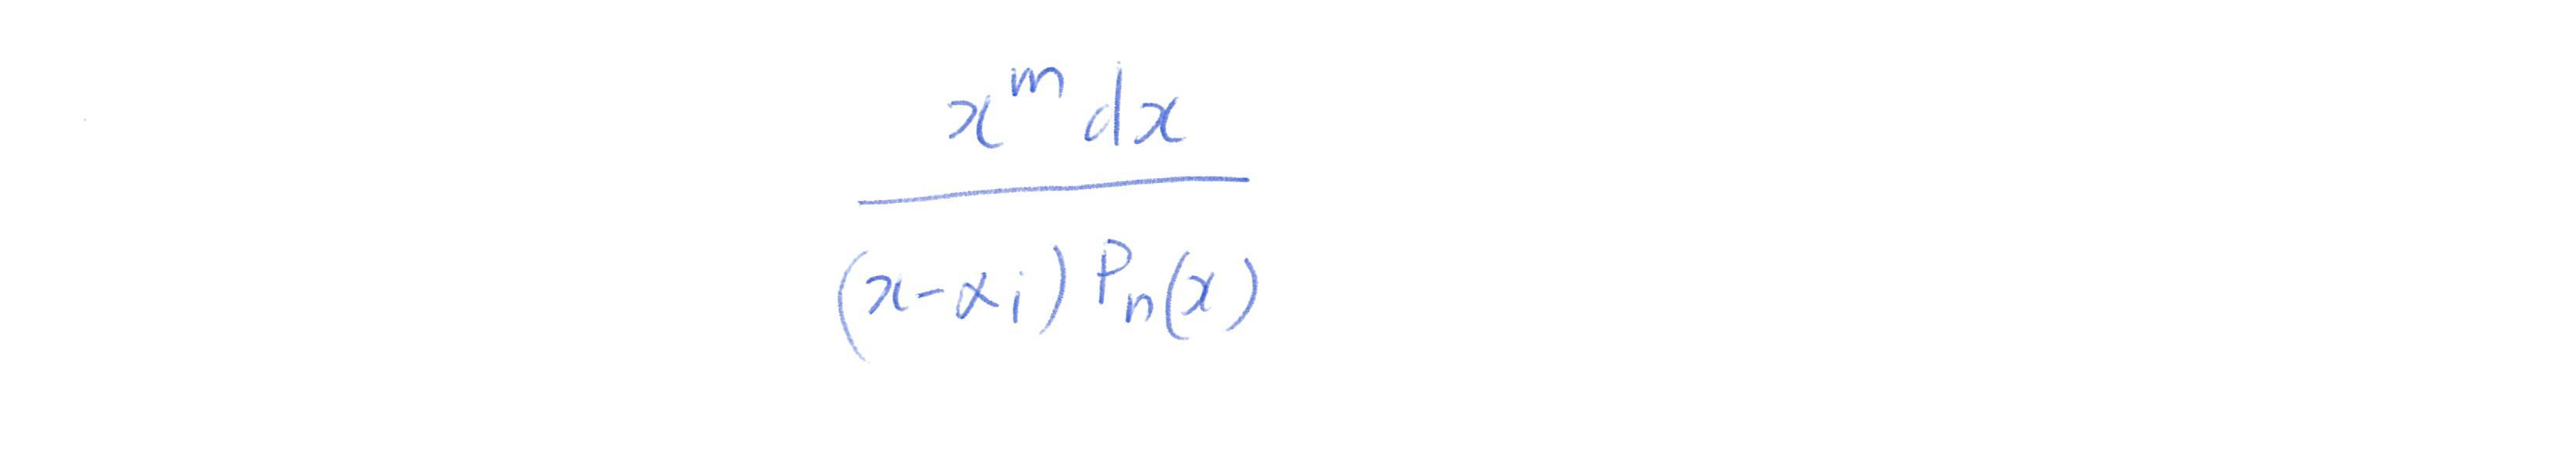 \frac{x^m dx}{(x-\alpha_i) P_n(x)}